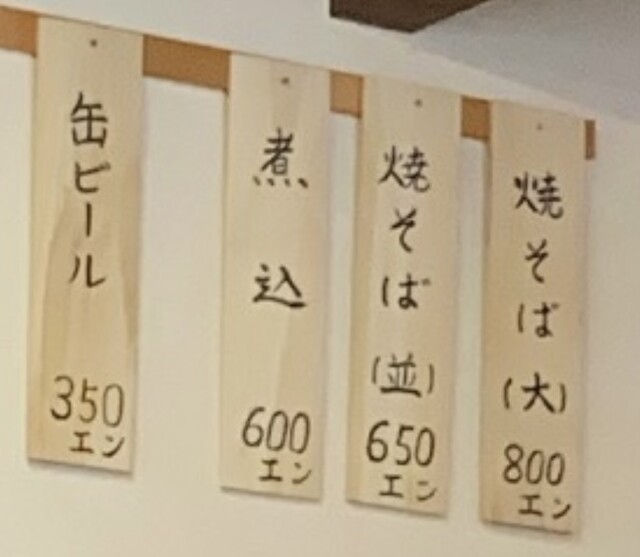 缶ビール
350
エン
煮込
600
エン
焼そば
(並)
650
エン
焼そば
(大)
800
エン